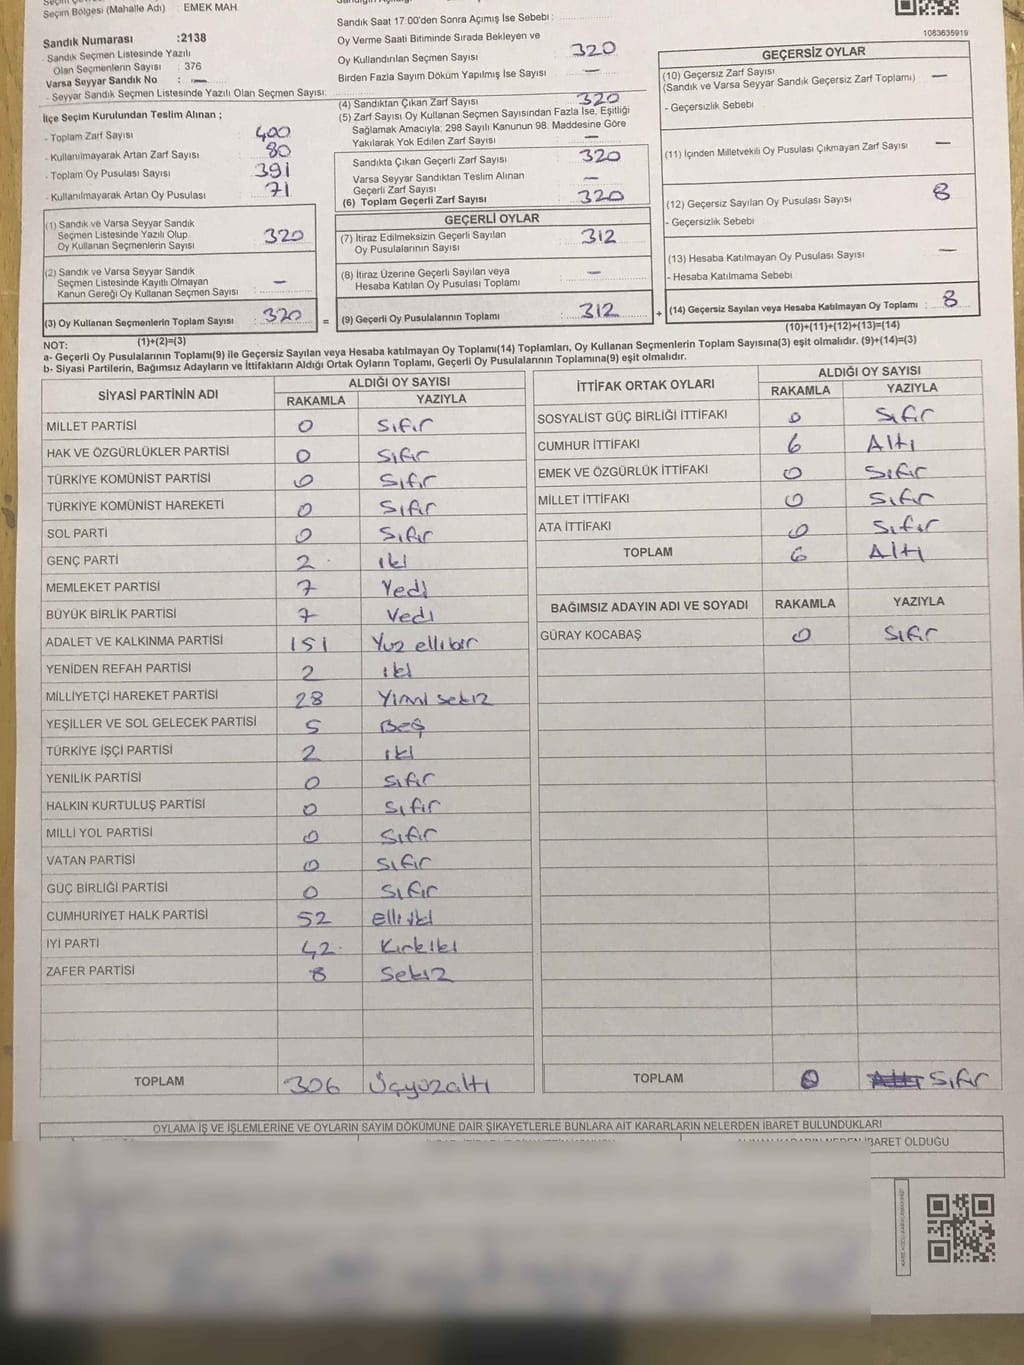 Seçim Bölgesi (Mahalle Adı) : EMEK MAH.
Sandık Numarası :2138
- Sandık Seçmen Listesinde Yazılı
Olan Seçmenlerin Sayısı : 376
Varsa Seyyar Sandık No : —
- Seyyar Sandık Seçmen Listesinde Yazılı Olan Seçmen Sayısı:
İlçe Seçim Kurulundan Teslim Alınan ;
- Toplam Zarf Sayısı 400
- Kullanılmayarak Artan Zarf Sayısı 80
- Toplam Oy Pusulası Sayısı 391
- Kullanılmayarak Artan Oy Pusulası 71
(1) Sandık ve Varsa Seyyar Sandık
Seçmen Listesinde Yazılı Olup
Oy Kullanan Seçmenlerin Sayısı 320
(2) Sandık ve Varsa Seyyar Sandık
Seçmen Listesinde Kayıtlı Olmayan
Kanun Gereği Oy Kullanan Seçmen Sayısı —
(3) Oy Kullanan Seçmenlerin Toplam Sayısı : 320
Sandık Saat 17:00'den Sonra Açılmış İse Sebebi :
Oy Verme Saati Bitiminde Sırada Bekleyen ve
Oy Kullandırılan Seçmen Sayısı 320
Birden Fazla Sayım Döküm Yapılmış İse Sayısı —
(4) Sandıktan Çıkan Zarf Sayısı 320
(5) Zarf Sayısı Oy Kullanan Seçmen Sayısından Fazla İse, Eşitliği
Sağlamak Amacıyla; 298 Sayılı Kanunun 98. Maddesine Göre
Yakılarak Yok Edilen Zarf Sayısı —
Sandıkta Çıkan Geçerli Zarf Sayısı 320
Varsa Seyyar Sandıktan Teslim Alınan
Geçerli Zarf Sayısı —
(6) Toplam Geçerli Zarf Sayısı 320
GEÇERLİ OYLAR
(7) İtiraz Edilmeksizin Geçerli Sayılan
Oy Pusulalarının Sayısı 312
(8) İtiraz Üzerine Geçerli Sayılan veya
Hesaba Katılan Oy Pusulası Toplamı —
= (9) Geçerli Oy Pusulalarının Toplamı : 312
1083635919
GEÇERSİZ OYLAR
(10) Geçersiz Zarf Sayısı
(Sandık ve Varsa Seyyar Sandık Geçersiz Zarf Toplamı) —
- Geçersizlik Sebebi
(11) İçinden Milletvekili Oy Pusulası Çıkmayan Zarf Sayısı —
(12) Geçersiz Sayılan Oy Pusulası Sayısı 8
- Geçersizlik Sebebi
(13) Hesaba Katılmayan Oy Pusulası Sayısı —
- Hesaba Katılmama Sebebi
+ (14) Geçersiz Sayılan veya Hesaba Katılmayan Oy Toplamı : 8
NOT: (1)+(2)=(3) (10)+(11)+(12)+(13)=(14)
a- Geçerli Oy Pusulalarının Toplamı(9) ile Geçersiz Sayılan veya Hesaba katılmayan Oy Toplamı(14) Toplamları, Oy Kullanan Seçmenlerin Toplam Sayısına(3) eşit olmalıdır. (9)+(14)=(3)
b- Siyasi Partilerin, Bağımsız Adayların ve İttifakların Aldığı Ortak Oyların Toplamı, Geçerli Oy Pusulalarının Toplamına(9) eşit olmalıdır.
SİYASİ PARTİNİN ADI ALDIĞI OY SAYISI
RAKAMLA YAZIYLA
MİLLET PARTİSİ 0 Sıfır
HAK VE ÖZGÜRLÜKLER PARTİSİ 0 Sıfır
TÜRKİYE KOMÜNİST PARTİSİ 0 Sıfır
TÜRKİYE KOMÜNİST HAREKETİ 0 Sıfır
SOL PARTİ 0 Sıfır
GENÇ PARTİ 2 iki
MEMLEKET PARTİSİ 7 Yedi
BÜYÜK BİRLİK PARTİSİ 7 Yedi
ADALET VE KALKINMA PARTİSİ 151 Yuz ellibir
YENİDEN REFAH PARTİSİ 2 iki
MİLLİYETÇİ HAREKET PARTİSİ 28 Yirmi sekiz
YEŞİLLER VE SOL GELECEK PARTİSİ 5 Beş
TÜRKİYE İŞÇİ PARTİSİ 2 iki
YENİLİK PARTİSİ 0 Sıfır
HALKIN KURTULUŞ PARTİSİ 0 Sıfır
MİLLİ YOL PARTİSİ 0 Sıfır
VATAN PARTİSİ 0 Sıfır
GÜÇ BİRLİĞİ PARTİSİ 0 Sıfır
CUMHURİYET HALK PARTİSİ 52 elliiki
İYİ PARTİ 42 Kırkiki
ZAFER PARTİSİ 8 Sekiz
TOPLAM 306 Üçyüzaltı
İTTİFAK ORTAK OYLARI ALDIĞI OY SAYISI
RAKAMLA YAZIYLA
SOSYALİST GÜÇ BİRLİĞİ İTTİFAKI 0 Sıfır
CUMHUR İTTİFAKI 6 Altı
EMEK VE ÖZGÜRLÜK İTTİFAKI 0 Sıfır
MİLLET İTTİFAKI 0 Sıfır
ATA İTTİFAKI 0 Sıfır
TOPLAM 6 Altı
BAĞIMSIZ ADAYIN ADI VE SOYADI RAKAMLA YAZIYLA
GÜRAY KOCABAŞ 0 Sıfır
TOPLAM 0 Sıfır
OYLAMA İŞ VE İŞLEMLERİNE VE OYLARIN SAYIM DÖKÜMÜNE DAİR ŞİKAYETLERLE BUNLARA AİT KARARLARIN NELERDEN İBARET BULUNDUKLARI
İBARET OLDUĞU